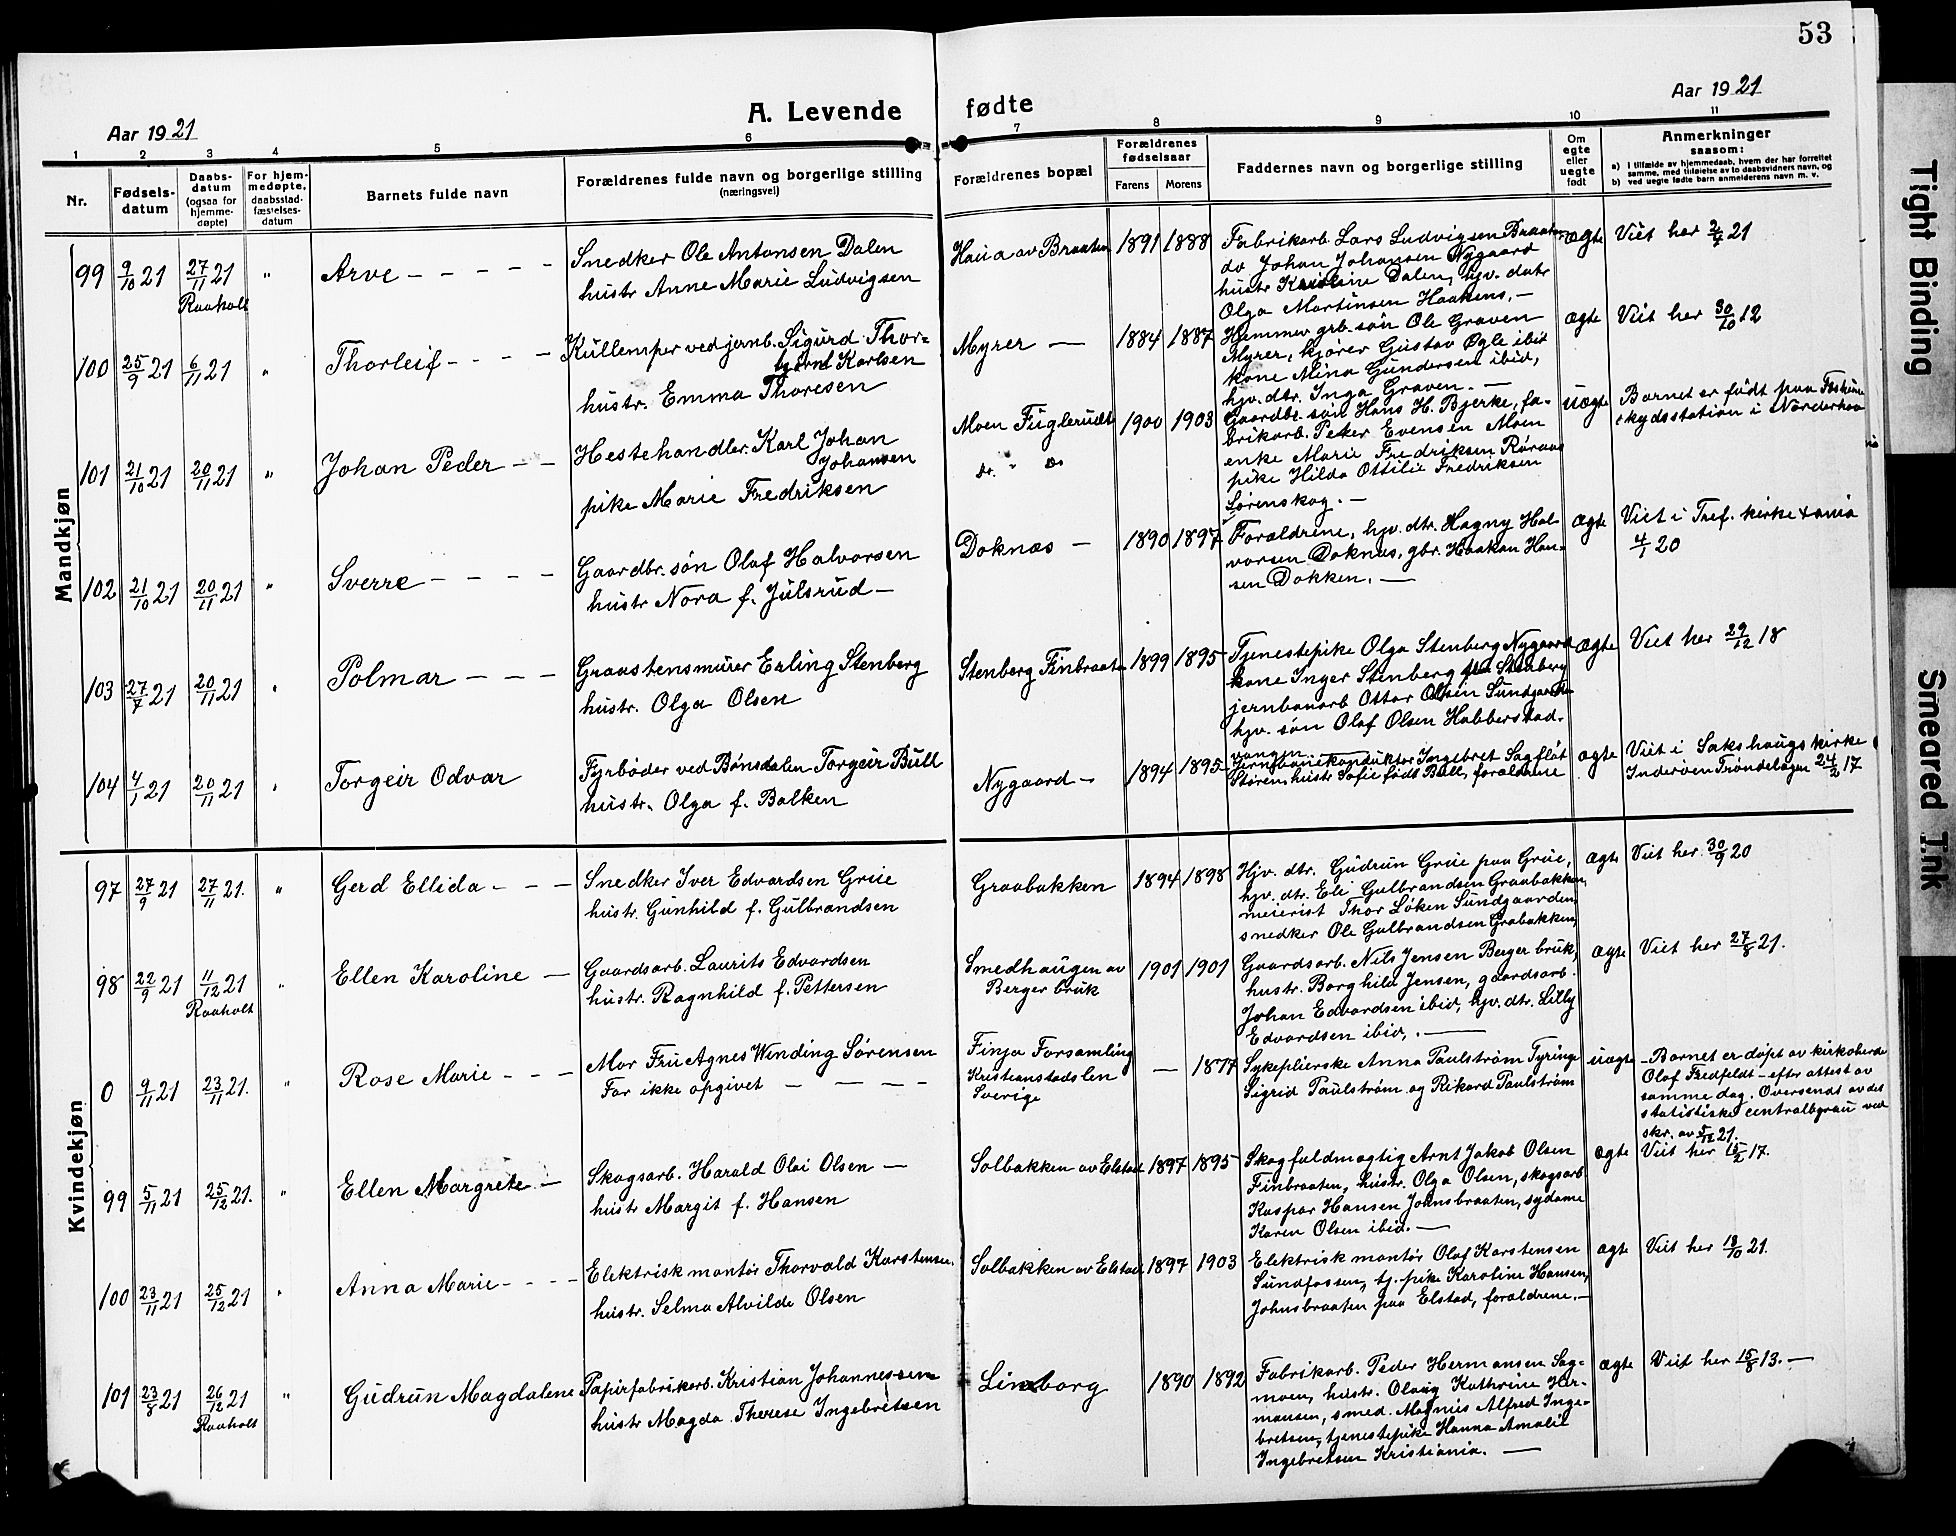 53
Aar 1921
A. Levende fødte
Aar 1921
1 2 3 4 5 6 7 8 9 10 11
Nr.
Fødsels-
datum
Daabs-
datum
(ogsaa for
hjemme-
døpte)
For hjem-
medøpte,
daabsstad-
fæstelses-
datum
Barnets fulde navn
Forældrenes fulde navn og borgerlige stilling
(næringsvei)
Forældrenes bopæl
Forældrenes
fødselsaar
Farens Morens
Faddernes navn og borgerlige stilling
Om
egte
eller
uegte
født
Anmerkninger
saasom:
a) I tilfælde av hjemmedaab, hvem der har forrettet
samme, med tilføielse av to daabsvidners navn, og
b) ved uegte fødte barn anmelderens navn m. v.
Mandkjøn
99 9/10 21 27/11 21 " Arve - - - - -
Raaholt
Snedker Ole Antonsen Dalen
hustr Anne Marie Ludvigsen
Haua av Braaten 1891 1888
Fabrikarb. Lars Ludvigsen Braaten
do Johan Johansen Nygaard
hustr Kristine Dalen, hjv. datr
Olga Martinsen Haakens, -
ægte Viet her 2/7 21
100 25/9 21 6/11 21 " Thorleif - - - -
Kullemper ved jernb. Sigurd Thor-
bjørn Karlsen
hustr. Emma Thoresen
Myrer - 1884 1887
Hemmev grb. søn Ole Graven
Myrer, kjører Gustav Øgle ibid
kone Mina Gundersen ibid,
hjv. dtr. Inga Graven. -
ægte Viet her 30/10 12
101 21/10 21 20/11 21 " Johan Peder - -
Hestehandler. Karl Johan
Johansen
pike Marie Fredriksen
Moen Fuglerudt 1900 1903
do. " do
Gaardbr. søn Hans H. Bjerke, fa-
brikarb. Peter Evensen Moen
enke Marie Fredriksen Røraas
pike Hilda Ottilie Fredriksen
Sørenskog. -
uægte Barnet er født paa
skydsstation i Norderhov
102 21/10 21 20/11 21 " Sverre - - - -
Gaardbr. søn Olaf Halvorsen
hustr Nora f. Julsrud -
Doknæs - 1890 1897
Forældrene, hjv. dtr. Hagny Hal-
vorsen Doknæs, gbr. Haakon Han-
sen Dokken. -
ægte Viet i Tref. kirke Xania
4/1 20
103 27/7 21 20/11 21 " Polmar - - -
Graastensmurer Erling Stenberg
hustr. Olga Olsen
Stenberg Finbraaten 1899 1895
Tjenestepike Olga Stenberg Nygaard
kone Inger Stenberg Stenberg
jernbanarb Ottar Olsen Sundgaarden
hjv. søn Olaf Olsen Habberstad.
vangen
ægte Viet her 29/12 18
104 4/1 21 20/11 21 " Torgeir Odvar
Fyrbøder ved Bønsdalen Torgeir Bull
hustr. Olga f. Balken
Nygaard - 1894 1895
Jernbanekonduktør Ingebret Sagflåt
Støren, hustr Sofie født Bull, forældrene
ægte Viet i Sakshaugs kirke
Inderøen Trøndelagen 24/2 17
Kvindekjøn
97 27/9 21 27/11 21. " Gerd Ellida - - -
Snedker Iver Edvardsen Grue
hustr. Gunhild f. Gulbrandsen
Graabakken 1894 1898
Hjv. dtr. Gudrun Grue paa Grue,
hjv. dtr. Eli Gulbrandsen Graabakken,
meierist Thor Løken Sundgaarden,
snedker Ole Gulbrandsen Grabakken,
ægte Viet her. 30/9 20
98 22/9 21 11/12 21 " Ellen Karoline -
Raaholt
Gaardsarb. Laurits Edvardsen
hustr. Ragnhild f. Pettersen
Smedhaugen av
Berger bruk
1901 1901
Gaardsarb. Nils Jensen Berger bruk,
hustr. Borghild Jensen, gaardsarb.
Johan Edvardsen ibid, hjv. dtr. Lilly
Edvardsen ibid, . -
ægte Viet her 27/8 21.
0 9/11 21 23/11 21. " Rose Marie - - -
Mor Fru Agnes Winding Sørensen
Far ikke opgivet - - - -
Finja Forsamling
Kristianstadslen
Sverige
- 1877
Sykepleierske Anna Paulstrøm Tyringe
Sigrid Paulstrøm og Rikard Paulstrøm
uægte - Barnet er døpt av kirkoherde
Olof Fredfeldt - eftr attest av
samme dag. Oversendt av det
statistiske centralbyrau ved
skr. av 5/12 21.
99 5/11 21 25/12 21. " Ellen Margrete -
Skogsarb. Harald Olai Olsen -
hustr Margit f. Hansen
Solbakken av Elstad 1897 1895
Skogfuldmægtig Arnt Jakob Olsen
Finbraaten, hustr. Olga Olsen, skogsarb
Kaspar Hansen Johnsbraaten, sydame
Karen Olsen ibid. -
ægte Viet her 15/2 17.
100 23/11 21 25/12 21 " Anna Marie - - - -
Elektrisk montør Thorvald Karstensen.
hustr. Selma Alvilde Olsen
Solbakken av Elstad 1897 1903
Elektrisk montør Olaf Karstensen
Sundfossen, tj. pike Karoline Hansen,
Johnsbraaten paa Elstad, forældrene. -
ægte Viet her 18/10 21.
101 23/8 21 26/12 21 " Gudrun Magdalene
Raaholt
Papirfabrikarb. Kristian Johannessen
hustr Magda Therese Ingebretsen
Linborg 1890 1892
Fabrikarb. Peder Hermansen Sag-
moen, hustr. Olaug Kathrine Her-
mansen, smed. Magnus Alfred Inge-
bretsen, tjenestepike Hanna Amalie
Ingebretsen Kristiania. -
ægte Viet her 15/8 13. -
Tight Binding
Smeared Ink